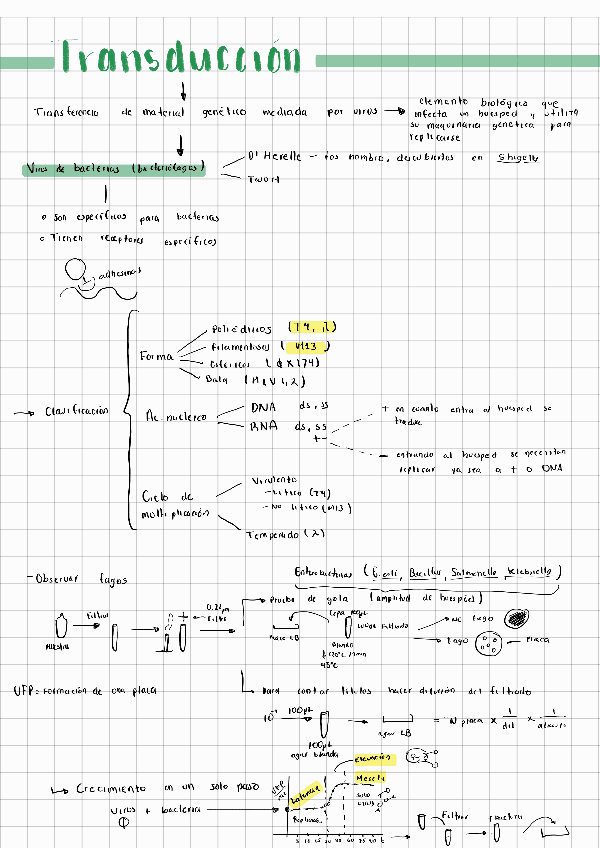 Transducción
Transferencia de material genético mediada por virus → elemento biológico que
infecta un huesped y utiliza
su maquinaria genética para
replicarse
Virus de bacterias (bacteriófagos)
D' Herelle – los nombro, descubiertos en Shigella
Twort
o son específicos para bacterias
o Tienen receptores específicos
adhesinas
→ Clasificación
Forma
Poliédricos (T4, λ)
Filamentosos (M13)
Esféricos (φX174)
Ac. nucleico
DNA ds, ss
RNA ds, ss
+ -
+ en cuanto entra al huesped se
traduce
- entrando al huesped se necesitan
replicar ya sea a + o DNA
Ciclo de
multiplicación
Virulento
- Lítico (T4)
- No lítico (M13)
Temperado (λ)
- Observar fagos
Enterobacterias (E. coli, Bacillus, Salmonella, Klebsiella)
Muestra
Filtrar
0.22 μm
Filtro
→ Prueba de gota (amplitud de huesped)
Medio LB
Cepa
Blando
45°C
Filtrado
No fago
Fago
Placa
UFP: Formación de una placa
Para contar títulos hacer dilución del filtrado
10⁻¹ 100μL
100μL
agar blando
agar LB
= N placa × 1/dil × 1/alícuota
↳ Crecimiento en un solo paso
virus + bacteria
Φ
UFP
Latencia
Eclipse
Elevación
Meseta
solo
virus
5 10 15 20 30 40
Filtrar